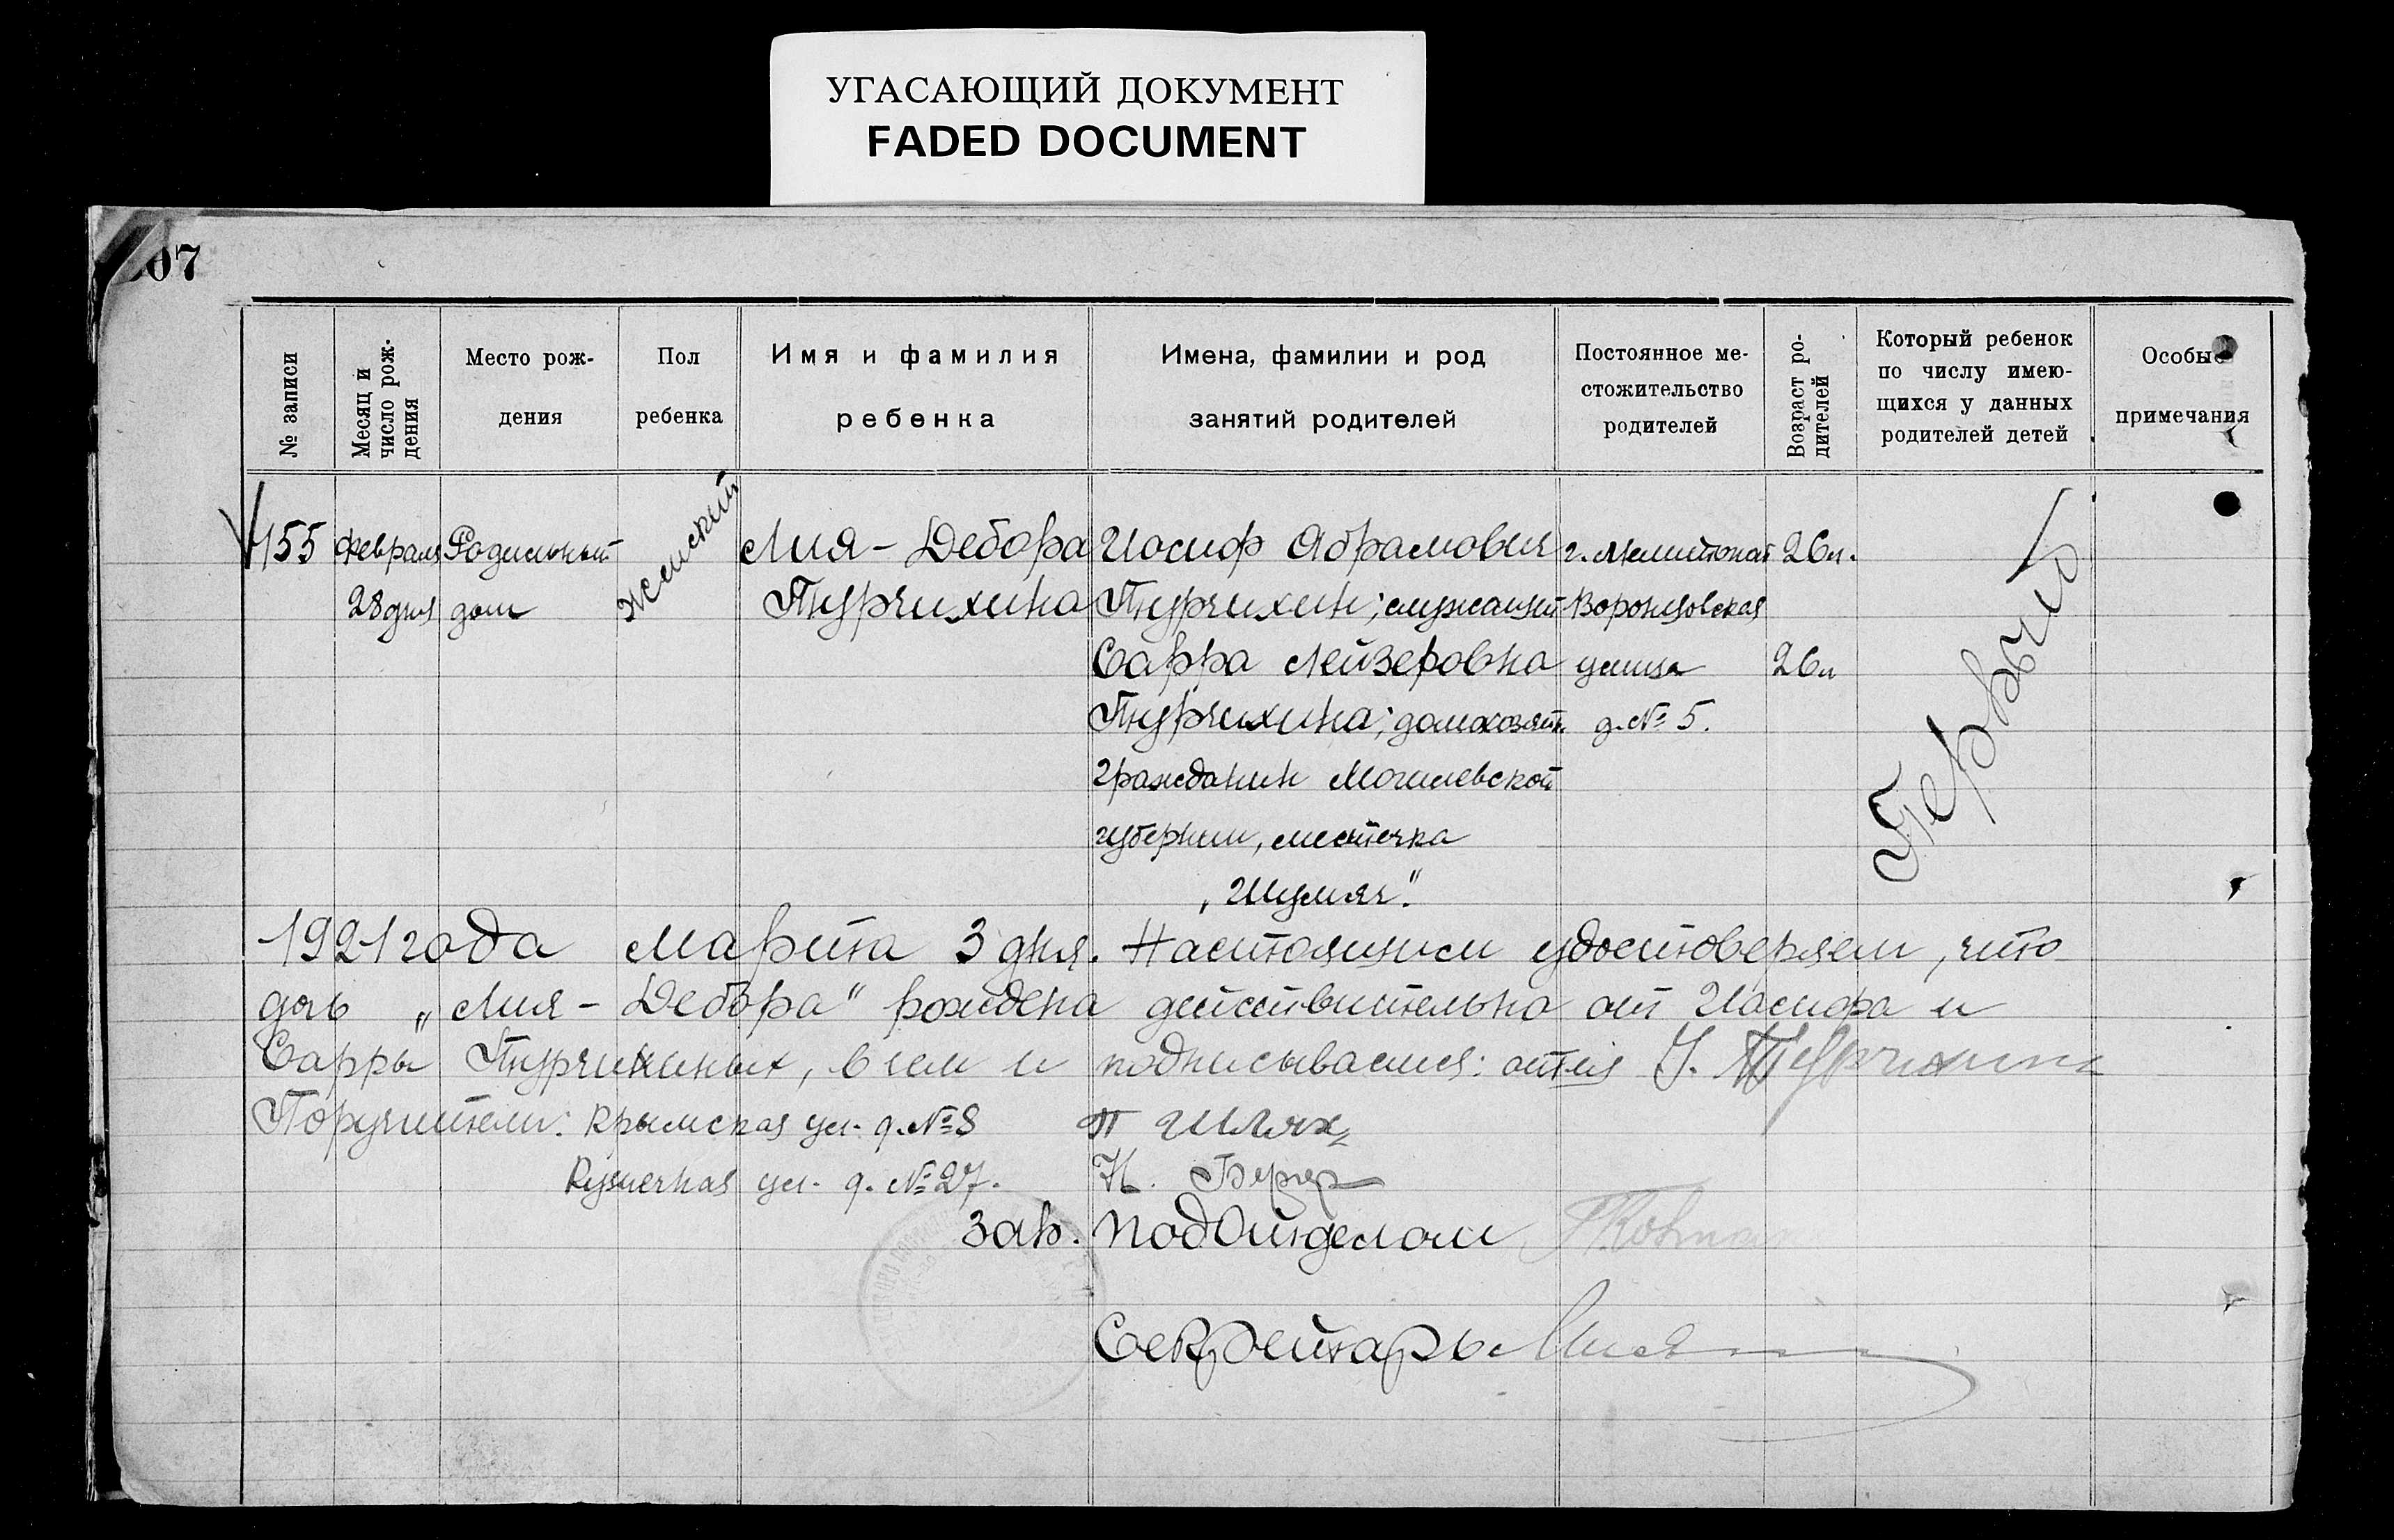 УГАСАЮЩИЙ ДОКУМЕНТ
FADED DOCUMENT
07
№ записи
Месяц и
число рож-
дения
Место рож-
дения
Пол
ребенка
Имя и фамилия
ребенка
Имена, фамилии и род
занятий родителей
Постоянное ме-
стожительство
родителей
Возраст ро-
дителей
Который ребенок
по числу имею-
щихся у данных
родителей детей
Особые
примечания
155 февраля Родильный Женский Лия-Дебора Иосиф Абрамович г. Мелитополь 26 л. Первый
28 дня дом Турчихина Турчихин; служащий Воронцовская
Сарра Лейзеровна улица 26 л
Турчихина; домохозяй. д. № 5.
гражданин Могилевской
губернии, местечка
„Шумяч".
1921 года Марта 3 дня. Настоящим удостоверяем, что
дочь „Лия-Дебора" рождена действительно от Иосифа и
Сарры Турчихиных, в чем и подписываемся: отец И. Турчихин
Поручители: Крымская ул. д. № 8 Шлях
Кузнечная ул. д. № 27. Н. Бергер
Зав. подотделом
Секретарь